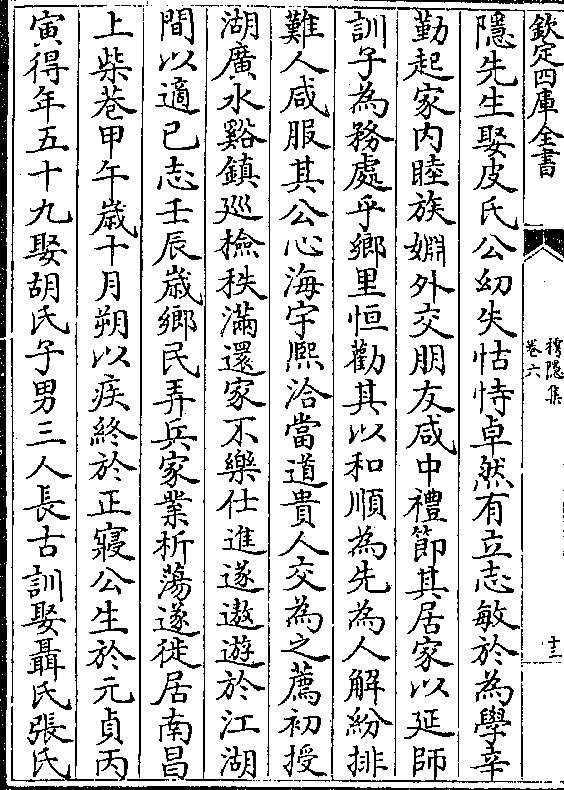 欽定四庫全書
樗隱集
卷六
十三
隱先生娶皮氏公幼失怙恃卓然有立志敏於為學辛
勤起家内睦族婣外交朋友咸中禮節其居家以延師
訓子為務處乎鄉里恒勸其以和順為先為人解紛排
難人咸服其公心海宇熙洽當道貴人交為之薦初授
湖廣水谿鎮廵檢秩滿還家不樂仕進遂遨遊於江湖
間以適已志壬辰歳鄉民弄兵家業析蕩遂徙居南昌
上柴巷甲午歳十月朔以疾終於正寢公生於元貞丙
寅得年五十九娶胡氏子男三人長古訓娶聶氏張氏